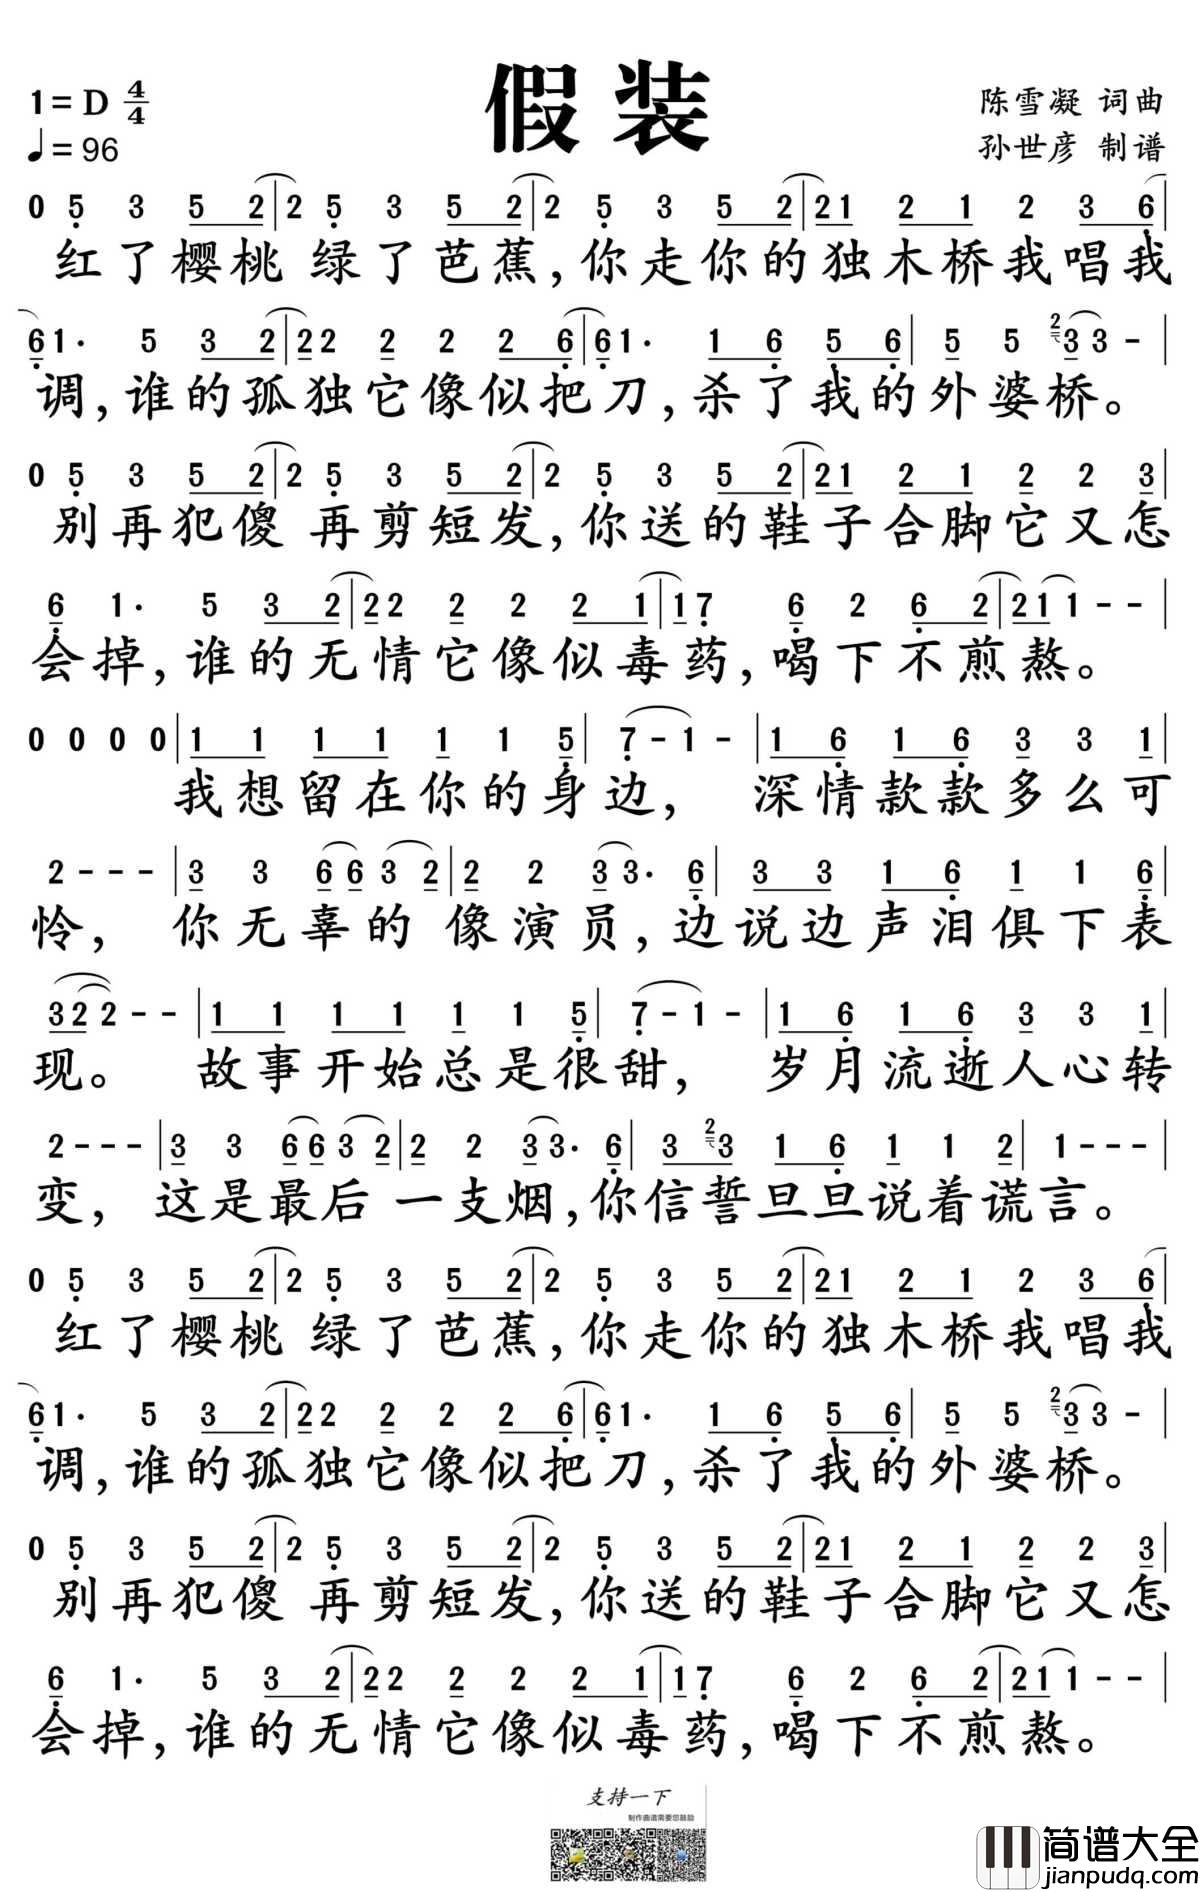 假装
1=D 4/4
♩=96
陈雪凝 词曲
孙世彦 制谱
0 5 3 5 2|2 5 3 5 2|2 5 3 5 2|21 2 1 2 3 6|
红了樱桃 绿了芭蕉,你走你的独木桥我唱我
61· 5 3 2|22 2 2 2 6|61· 1 6 5 6|5 5 2 33 -|
调,谁的孤独它像似把刀,杀了我的外婆桥。
0 5 3 5 2|2 5 3 5 2|2 5 3 5 2|21 2 1 2 2 3|
别再犯傻 再剪短发,你送的鞋子合脚它又怎
6 1· 5 3 2|22 2 2 2 1|17 6 2 6 2|21 1 - -|
会掉,谁的无情它像似毒药,喝下不煎熬。
0 0 0 0|1 1 1 1 1 1 5|7 - 1 -|1 6 1 6 3 3 1|
我想留在你的身边, 深情款款多么可
2 - - -|3 3 66 3 2|2 2 33· 6|3 3 1 6 1 1 6|
怜, 你无辜的 像演员,边说边声泪俱下表
322 - -|1 1 1 1 1 1 5|7 - 1 -|1 6 1 6 3 3 1|
现。 故事开始总是很甜, 岁月流逝人心转
2 - - -|3 3 66 3 2|2 2 33· 6|3 2 3 1 6 1 1 2|1 - - -|
变, 这是最后 一支烟,你信誓旦旦说着谎言。
0 5 3 5 2|2 5 3 5 2|2 5 3 5 2|21 2 1 2 3 6|
红了樱桃 绿了芭蕉,你走你的独木桥我唱我
61· 5 3 2|22 2 2 2 6|61· 1 6 5 6|5 5 2 33 -|
调,谁的孤独它像似把刀,杀了我的外婆桥。
0 5 3 5 2|2 5 3 5 2|2 5 3 5 2|21 2 1 2 2 3|
别再犯傻 再剪短发,你送的鞋子合脚它又怎
6 1· 5 3 2|22 2 2 2 1|17 6 2 6 2|21 1 - -|
会掉,谁的无情它像似毒药,喝下不煎熬。
支持一下
制作曲谱需要您鼓励
简谱大全
jianpudq.com